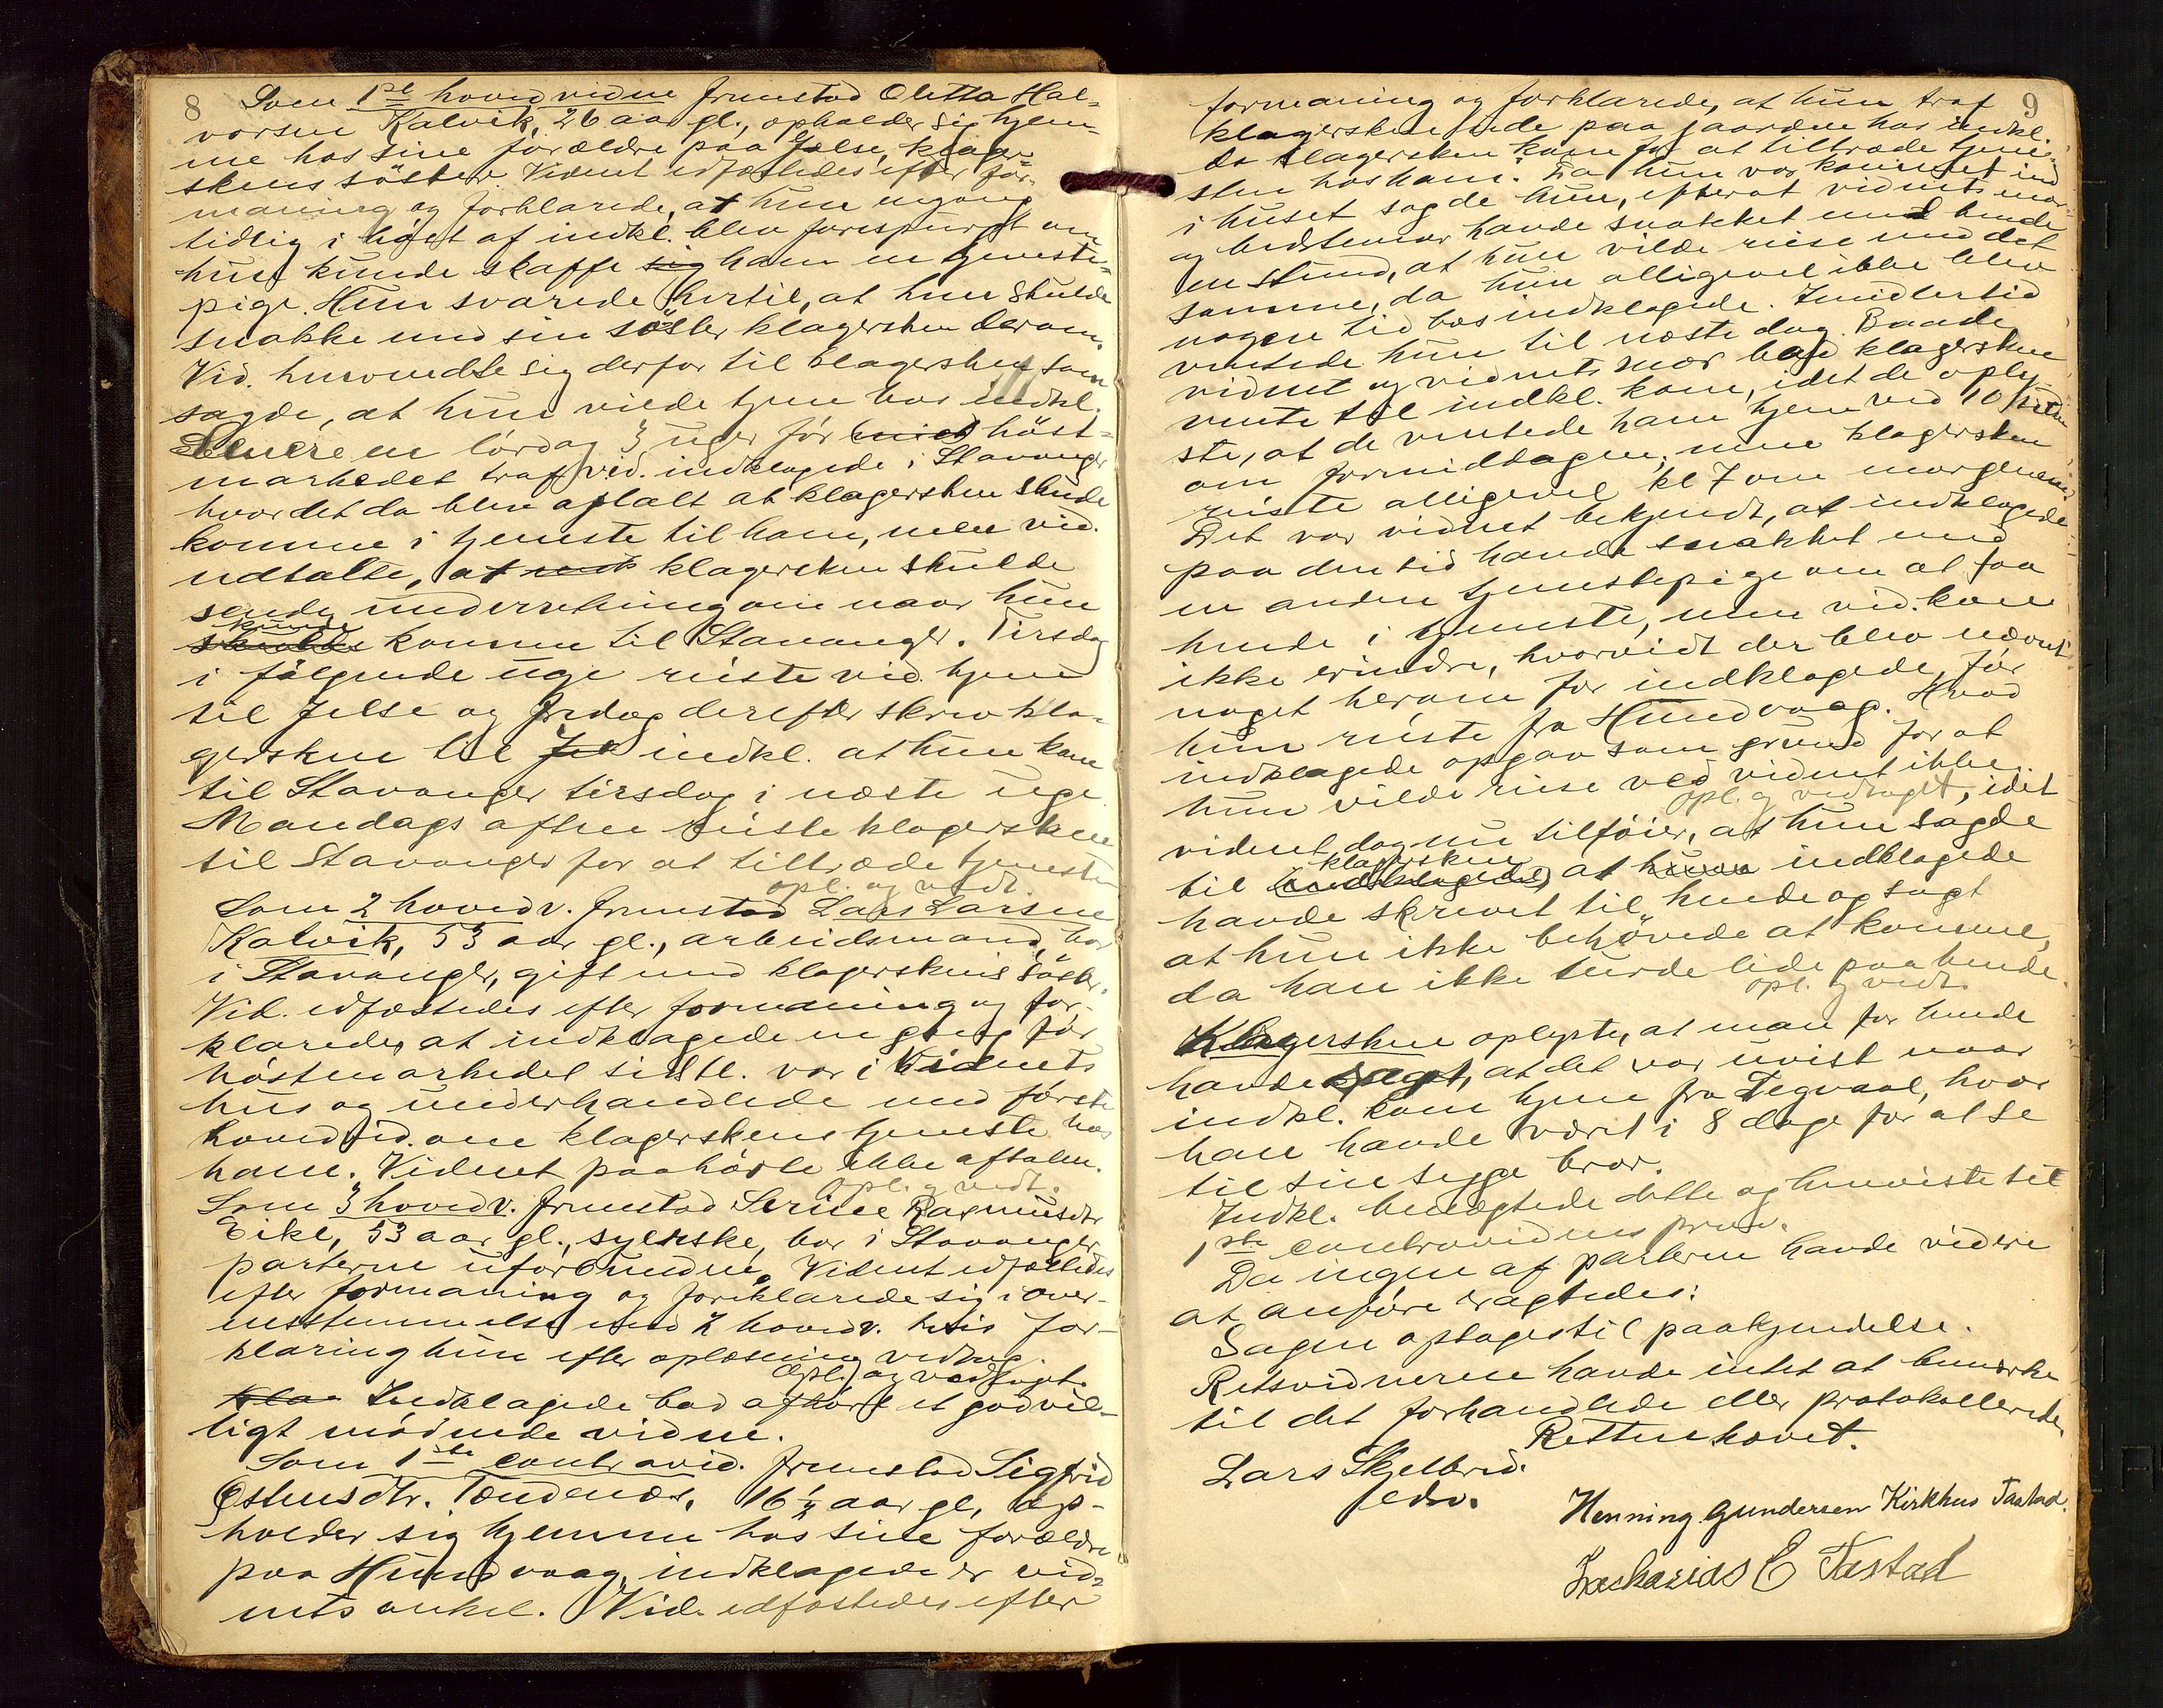 8
Som 1ste hovedvidne fremstod Oletta Hal-
vorsen Kalvik, 26 aar gl., opholder sig hjem-
me hos sine forældre paa Jelse, klager-
skens söster. Vidnet edfæstedes efter for-
maning og forklarede, at hun engang
tidlig i höst af indkl. blev forespurgt om
hun kunde skaffe sig ham en tjeneste-
pige. Hun svarede hertil, at hun skulde
snakke med sin söster klagersken derom.
Vid. henvendte sig derfor til klagersken som
sagde, at hun vilde tjene hos indkl.
Senere en lördag 3 uger för höst-
markedet traf vid. indklagede i Stavanger
hvor det da blev aftalt at klagersken skulde
komme i tjeneste til ham, men vid.
udtalte, at klagersken skulde
sende underretning om naar hun
kunde
skulde komme til Stavanger. Tirsdag
i fölgende uge reiste vid. hjem
til Jelse og fredag derefter skrev kla-
gersken til Jel indkl. at hun kom
til Stavanger tirsdag i næste uge.
Mandags aften reiste klagersken
til Stavanger for at tiltræde tjenesten
opl. og vedt.
Som 2 hovedv. fremstod Lars Larsen
Kalvik, 53 aar gl., arbeidsmand, bor
i Stavanger, gift med klagerskens söster.
Vid. edfæstedes efter formaning og for-
klarede, at indklagede en gang för
höstmarkedet sidstl. var i Vidnets
hus og underhandlede med förste
hovedvid. om klagerskens tjeneste hos
ham. Vidnet paahörte ikke aftalen.
opl. og vedt.
Som 3 hovedv. fremstod Serine Rasmusdtr
Eike, 53 aar gl., syerske, bor i Stavanger
parterne uforbunden. Vidnet edfæstedes
efter formaning og forklarede sig i over-
ensstemmelse med 2 hovedv. hvis for-
klaring hun efter oplæsning vedtog.
Opl. og vedtagt.
Kla Indklagede bad afhört et godvil-
ligt mödende vidne.
Som 1ste contravid. fremstod Sigfrid
Ostensdtr. Tændenæs, 16 ½ aar gl, op-
holder sig hjemme hos sine forældre
paa Hundvaag, indklagede er vid-
nets onkel. Vid. edfæstedes efter
9
formaning og forklarede, at hun traf
klagersken nede paa gaarden hos indkl.
da klagersken kom for at tiltræde tjene-
sten hos ham. Da hun var kommet ind
i huset sagde hun, efterat vidnets mor
og bedstemor havde snakket med hende
en stund, at hun vilde reise med det
samme, da hun alligevel ikke blev
nogen tid hos indklagede. Imidlertid
ventede hun til næste dag. Baade
vidnet og vidnets mor bad klagersken
vente til indkl. kom, idet de oply
ste, at de ventede ham hjem ved 10 tiden
om formiddagen, men klagersken
reiste alligevel kl 7 om morgenen.
Det var vidnet bekjendt, at indklagede
paa den tid havde snakket med
en anden tjenestepige om at faa
hende i tjeneste, men vid. kan
ikke erindre, hvorvidt der blev nævnt
noget herom for indklagede, för
hun reiste fra Hundvaag. Hvad
indklagede opgav som grund for at
hun vilde reise ved vidnet ikke.
opl. og vedtaget, idet
vidnet dog nu tilföier, at hun sagde
klagersken
til indklagede, at hun indklagede
havde skrevet til hende og sagt
at hun ikke behövede at komme,
da han ikke turde lide paa hende.
opl. og vedt.
Klagersken oplyste, at man for hende
havde sagt, at det var uvist naar
indkl. kom hjem fra Tegvaal, hvor
han havde været i 8 dage for at se
til sin syge bror.
Indkl. benægtede dette og henviste til
1ste contravidnes prov.
Da ingen af parterne havde videre
at anföre eragtedes:
Sagen optages til paakjendelse.
Retsvidnerne havde intet at bemærke
til det forhandlede eller protokollerede
Retten hævet.
Lars Skjelbrid.
edv.
Henning Gundersen Kirkhus Tastad.
Zackarias E Tastad